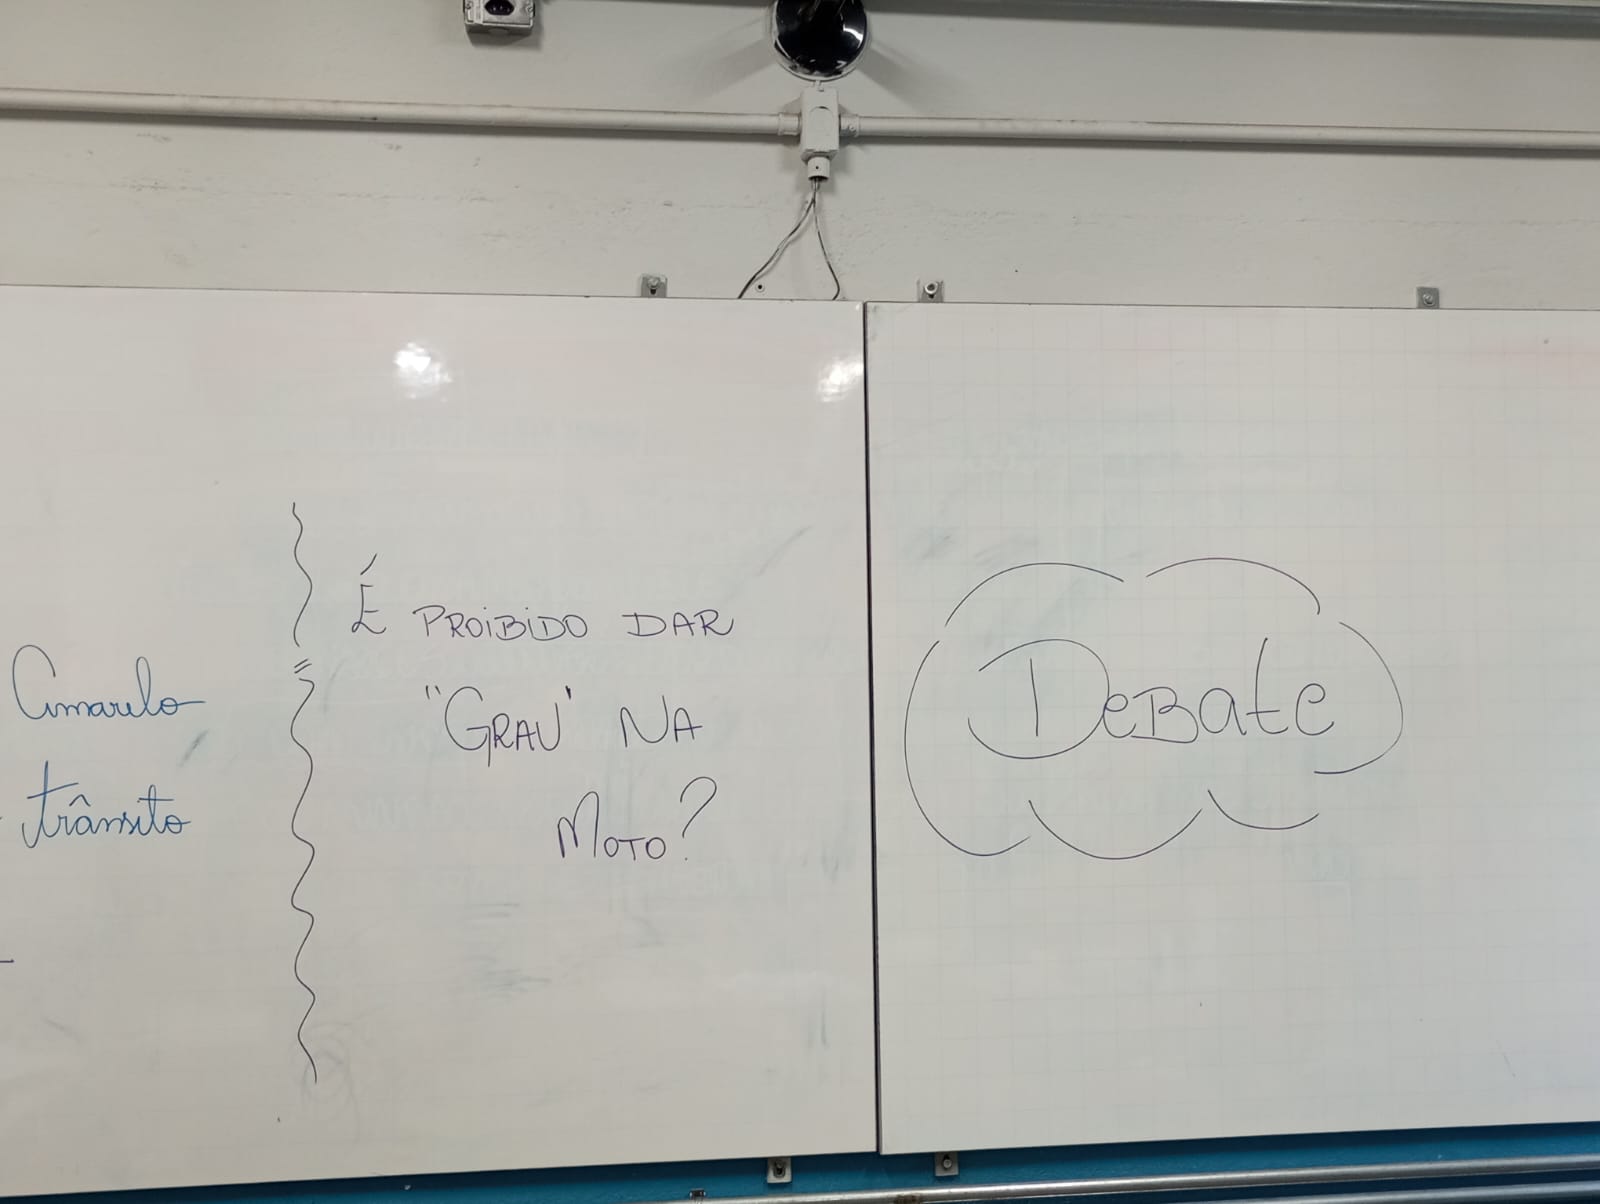 Amarelo
trânsito
É PROIBIDO DAR
"GRAU" NA
MOTO?
DEBATE